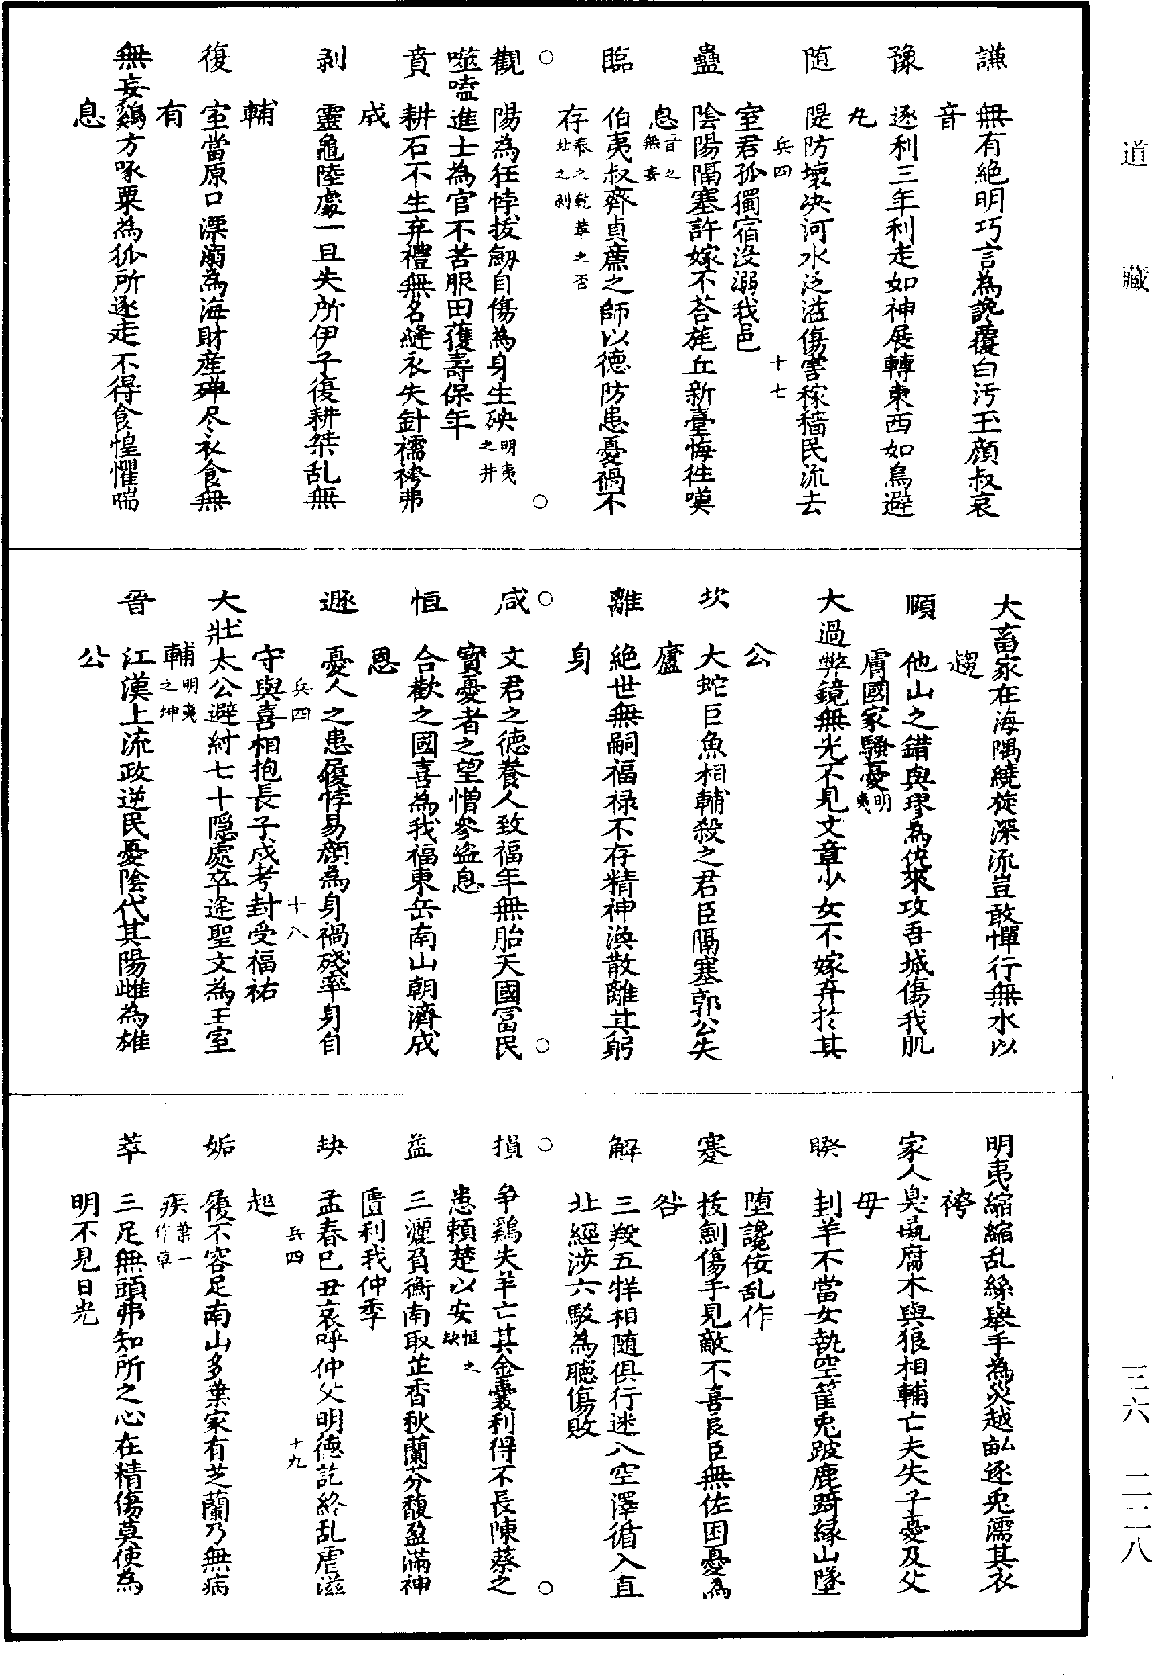 道藏
三六
二二八
謙　無有絕明巧言為讒覆白汚玉顏叔哀
音
豫　逐利三年利走如神展轉東西如鳥避
丸
随　隄防壞决河水泛溢傷害稼穡民流去
兵四　十七
室君孤獨宿没溺我邑
蠱　陰陽隔塞許嫁不荅旄丘新臺悔往嘆
息音之無妄
臨　伯夷叔齊貞㢘之師以德防患憂禍不
存泰之乾革之否比之剥
○　○
觀　陽為狂悖拔劒自傷為身生殃明夷之井
噬嗑進士為官不苦服田獲壽保年
賁　耕石不生弃禮無名縫衣失針襦袴弗
成
剥　靈龜陸處一旦失所伊子復耕桀乱無
輔
復　室當原口漂溺為海財産殫尽衣食無
有
無妄鷄方啄粟為狐所逐走不得食惶懼喘
息
大畜家在海隅繞旋深流豈敢憚行無水以
趨
頤　他山之錯與璆為仇來攻吾城傷我肌
膚國家騷憂明夷
大過弊鏡無光不見文章少女不嫁弃於其
公
坎　大蛇巨魚相輔殺之君臣隔塞郭公失
廬
離　絕世無嗣福禄不存精神渙散離其躬
身
○　○
咸　文君之德養人致福年無胎夭國冨民
寳憂者之望憎參盜息
恒　合歡之國喜為我福東岳南山朝濟成
恩
遯　憂人之患履悖易顏為身禍殘率身自
兵四　十八
守與喜相抱長子成考封受福祐
大壯太公避紂七十隠處卒逢聖文為王室
輔明夷之坤
晉　江漢上流政逆民憂陰代其陽雌為雄
公
明夷縮縮乱絲舉手為災越畝逐兎濡其衣
袴
家人臭彘腐木與狼相輔亡夫失子憂及父
母
睽　刲羊不當女執空筐兎跛鹿踦縁山墜
墮讒佞乱作
蹇　拔劍傷手見敵不喜良臣無佐困憂為
咎
解　三羖五牂相隨俱行迷入空澤循入直
北經涉六駮為聴傷敗
○　○
損　争鷄失羊亡其金囊利得不長陳蔡之
患賴楚以安恒之缺
益　三灑負衡南取芷香秋蘭芬馥盈滿神
匱利我仲季
缺　孟春巳丑哀呼仲父明德訖終乱虐滋
兵四　十九
起
姤　履不容足南山多葉家有芝蘭乃無病
疾葉一作草
萃　三足無頭弗知所之心在精傷莫使為
明不見日光